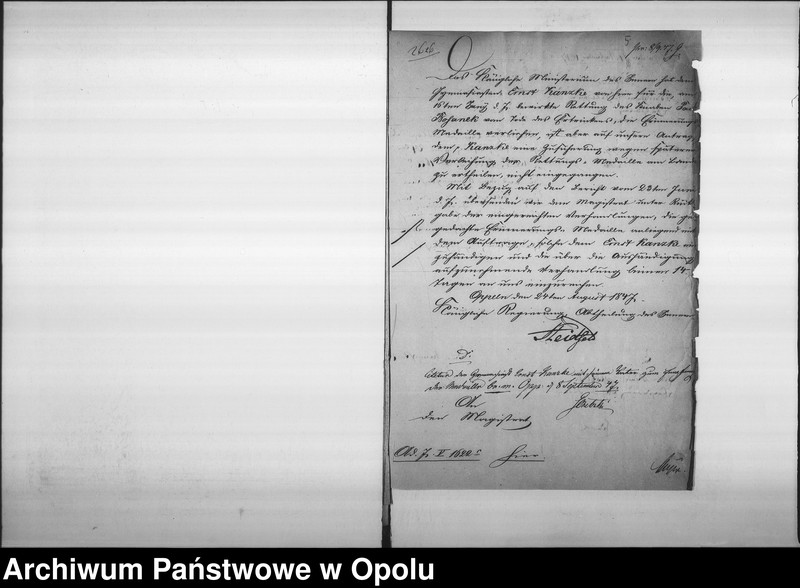 Das Königliche Ministerium des Innern hat dem
Gymnasiasten Ernst Kanzke von hier für die am
16ten d. J. bewirkte Rettung des Knaben
Kosanek vom Tode des Ertrinkens, die Erinnerungs
Medaille verliehen, ist aber auf unsern Antrag
dem Kanzke eine Zusicherung wegen späterer
Verleihung der Rettungs-Medaille am Bande
zu ertheilen, nicht eingegangen.
Mit Bezug auf den Bericht vom 23ten
d. J. übersenden wir dem Magistrat unter Rück
gabe der eingereichten Verhandlungen, die
gedachte Erinnerungs-Medaille anliegend mit
dem Auftrage, solche dem Ernst Kanzke
zuhändigen und die über die Aushändigung
aufzunehmende Verhandlung binnen 14
Tagen an uns einzureichen.
Oppeln den 24ten August 1847.
Königliche Regierung. Abtheilung des Innern
der Medaille Opp. d 8 September 47
An
den Magistrat
hier
Archiwum Państwowe w Opolu